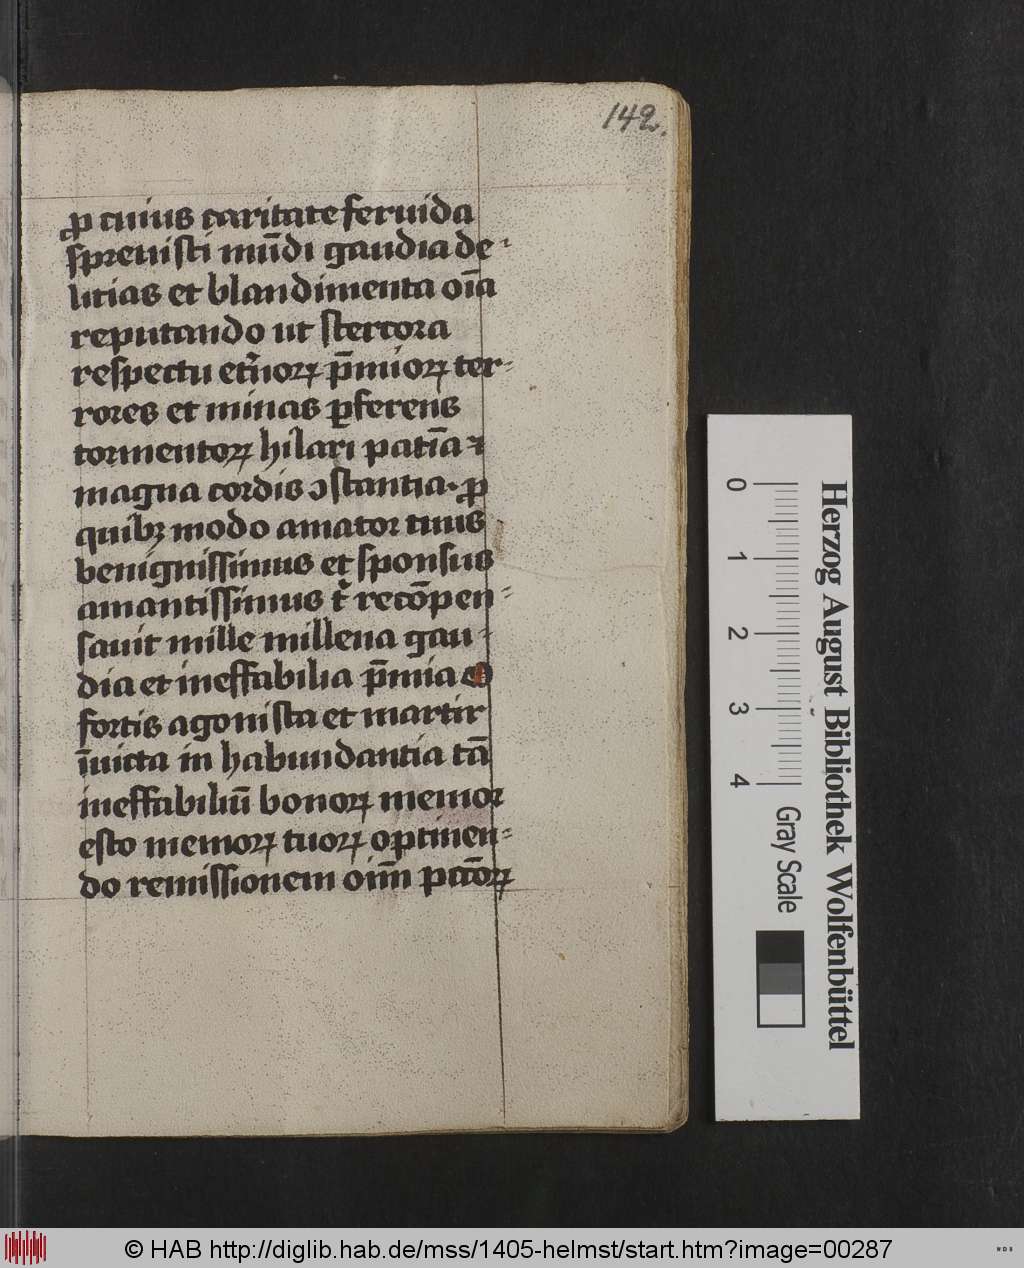 142.
ꝓ cuius caritate feruida
spreuisti mūdi gaudia de-
litias et blandimenta oīa
reputando ut stercora
respectu et̓noꝝ p̄mioꝝ ter-
rores et minas ꝑferens
tormentoꝝ hilari patīa ⁊
magna cordis ↄstantia. ꝓ
quibꝫ modo amator tuus
benignissimus et sponsus
amantissimus t̓ recōpen-
sauit mille millena gau-
dia et ineffabilia p̄mia O
fortis agonista et martir
īuicta in habundantia tā
ineffabiliū bonoꝝ memor
esto memoꝝ tuoꝝ optinen-
do remissionem oīm pctōꝝ
Herzog August Bibliothek Wolfenbüttel
0 1 2 3 4
Gray Scale
© HAB http://diglib.hab.de/mss/1405-helmst/start.htm?image=00287